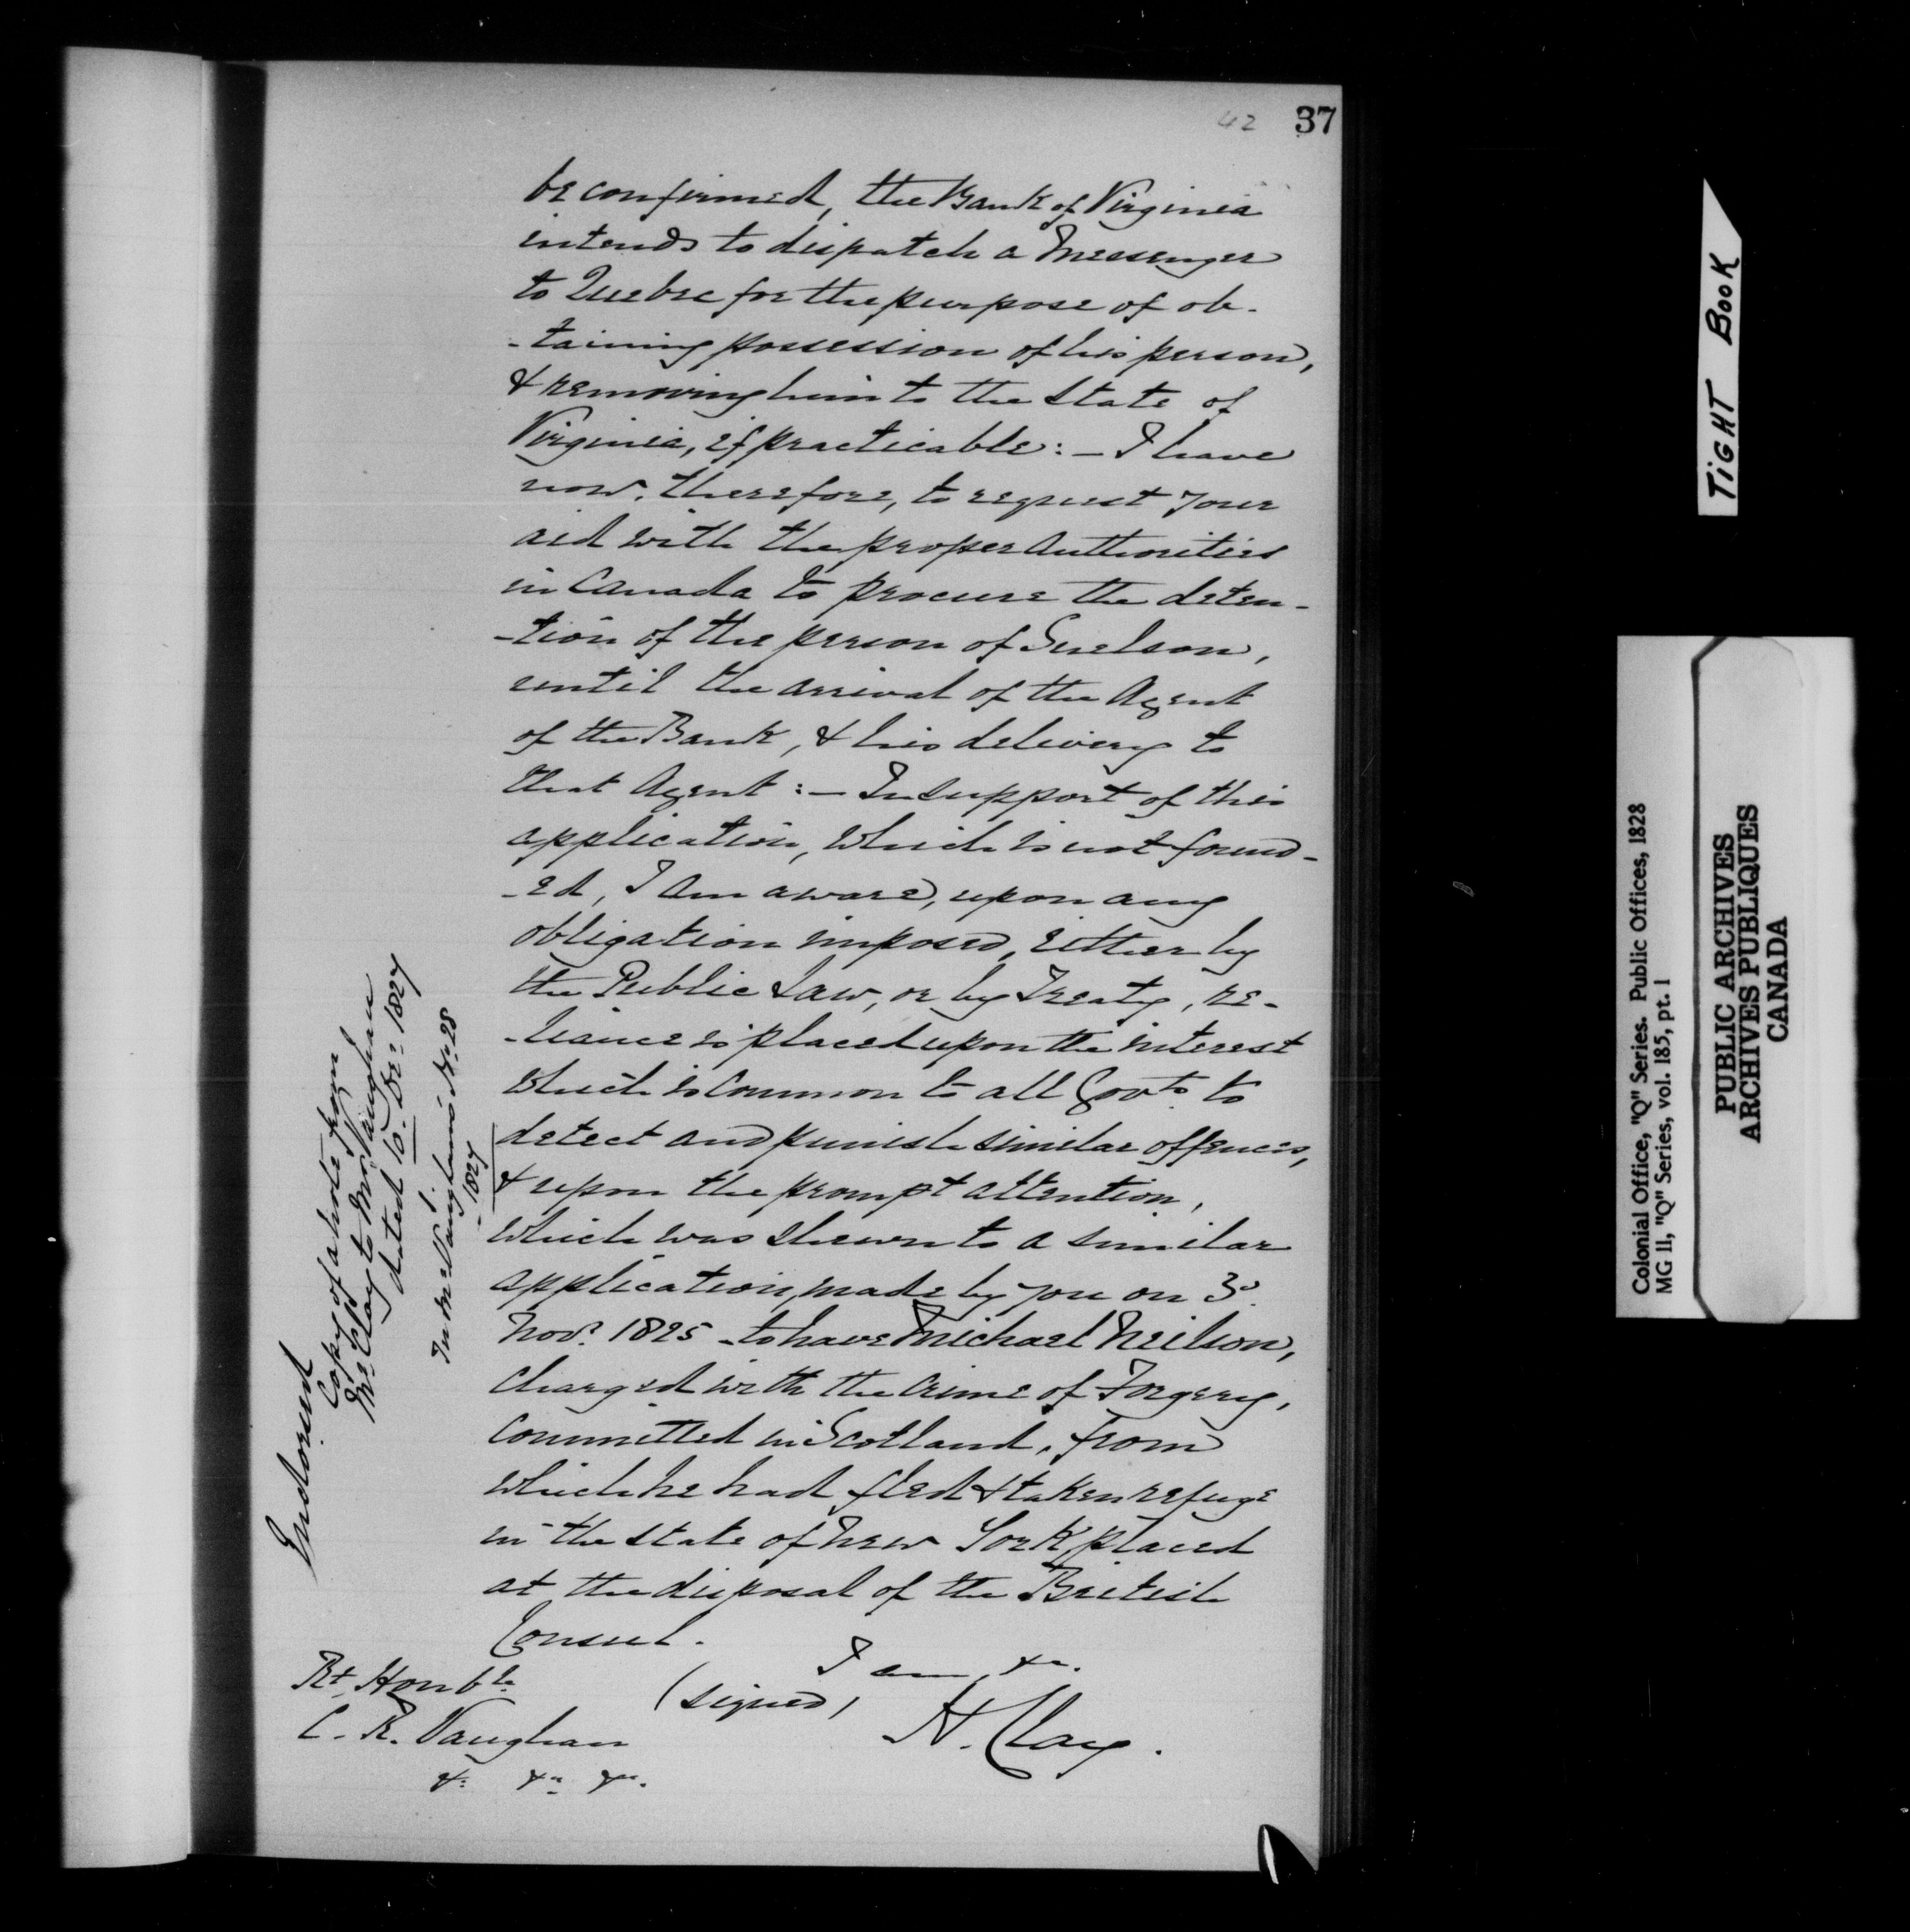 42 37
be confirmed, the Bank of Virginia
intends to dispatch a Messenger
to Quebec for the purpose of ob-
-taining possession of his person,
& removing him to the State of
Virginia, if practicable:— I have
now, therefore, to request your
aid with the proper Authorities
in Canada to procure the deten-
-tion of the person of Snelson,
until the arrival of the Agent
of the Bank, & his delivery to
that Agent:— In support of this
application, which is not found-
-ed, I am aware, upon any
obligation imposed, either by
the Public Law, or by Treaty, re-
-liance is placed upon the interest
which is common to all Govts to
detect and punish similar offences,
& upon the prompt attention,
which was shewn to a similar
application, made by you on 3d
Novr 1825 - to have Michael Neilson,
charged with the crime of Forgery,
committed in Scotland, from
which he had fled & taken refuge
in the State of New York, placed
at the disposal of the British
Consul.
I am, &c.
(signed) H. Clay.
Rt Honble
C. R. Vaughan
&c &c &c.
Indorsed
Copy of a note from
Mr Clay to Mr Vaughan
dated 10. Dec 1827
In Mr Vaughan's No. 28
- 1827
TIGHT BOOK
Colonial Office, "Q" Series. Public Offices, 1828
MG 11, "Q" Series, vol. 185, pt. 1
PUBLIC ARCHIVES
ARCHIVES PUBLIQUES
CANADA